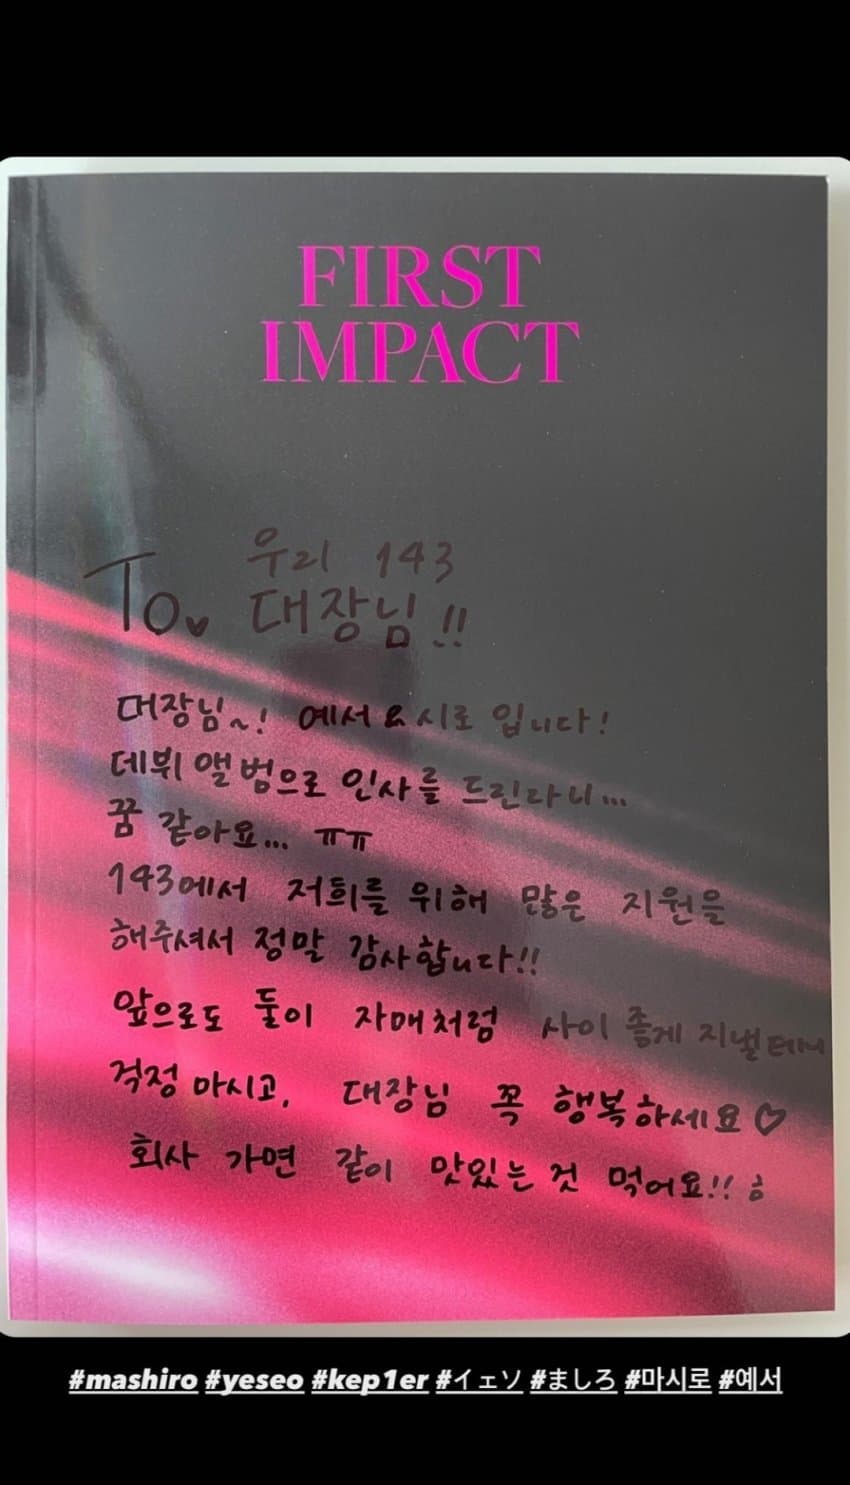 FIRST
IMPACT
To♥ 우리 143
대장님!!
대장님~! 예서 & 시로 입니다!
데뷔 앨범으로 인사를 드린다니...
꿈 같아요... ㅠㅠ
143에서 저희를 위해 많은 지원을
해주셔서 정말 감사합니다!!
앞으로도 둘이 자매처럼 사이 좋게 지낼테니
걱정 마시고, 대장님 꼭 행복하세요♡
회사 가면 같이 맛있는 것 먹어요!! ㅎ
#mashiro #yeseo #kep1er #イェソ #ましろ #마시로 #예서